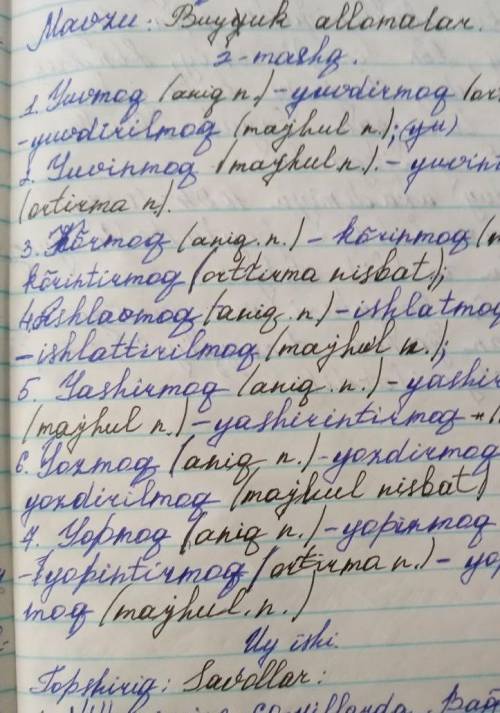 Mavzu: Buyyuk allomalar.
2-mashq.
1. Yuvmoq (aniq n.) - yuvdirmoq (ort
-yuvdirilmoq (majhul n.); (yu)
2. Yuvinmoq (majhul n.). - yuvint
(ortirma n).
3. Kōrmoq (aniq. n.) - kōrinmoq (m
kōrintirmoq (orttirma nisbat.);
4. Ishlamoq (aniq. n) - ishlatmoq
-ishlattirilmoq (majhul n.);
5. Yashirmoq (aniq. n.) - yashir
(majhul n.) - yashirintirmoq
6. Yozmoq (aniq n.) - yozdirmoq
yozdirilmoq (majhul nisbat)
7. Yopmoq (aniq n.) - yopinmoq
-yopintirmoq (ortirma n.) - yop
moq (majhul. n.)
Uy ishi.
Topshiriq: Savollar: